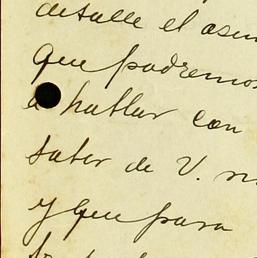 detalle el asun
que podremos
a hablar con
saber de V.
y que para